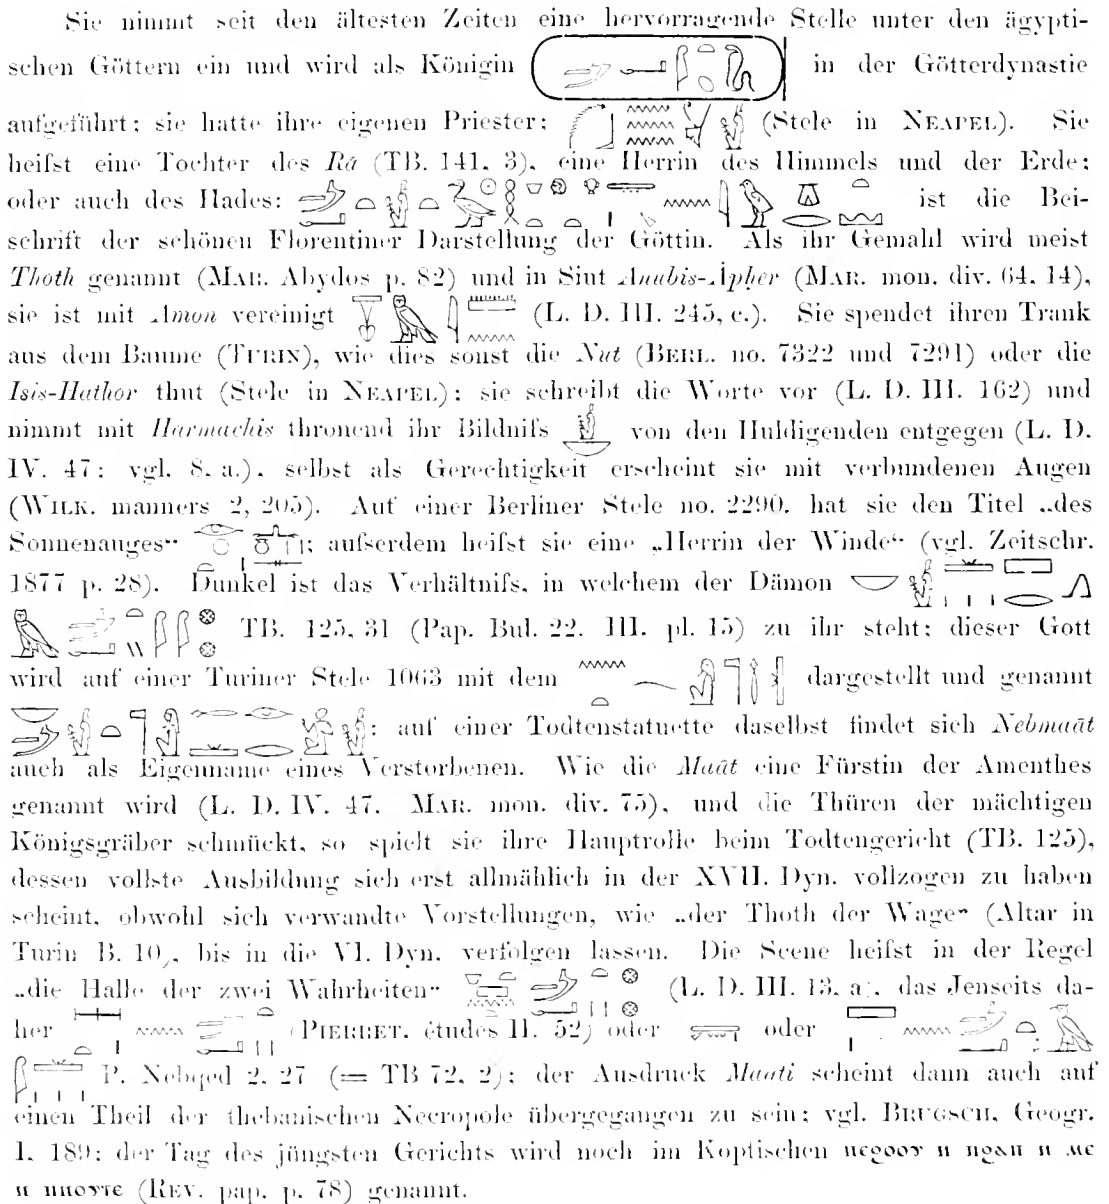 Sie nimmt seit den ältesten Zeiten eine hervorragende Stelle unter den ägypti-
schen Göttern ein und wird als Königin in der Götterdynastie
aufgeführt; sie hatte ihre eigenen Priester: (Stele in NEAPEL). Sie
heifst eine Tochter des Rā (TB. 141. 3), eine Herrin des Himmels und der Erde;
oder auch des Hades: ist die Bei-
schrift der schönen Florentiner Darstellung der Göttin. Als ihr Gemahl wird meist
Thoth genannt (MAR. Abydos p. 82) und in Siut Anubis-Ápher (MAR. mon. div. 64, 14),
sie ist mit Amon vereinigt (L. D. III. 245, c.). Sie spendet ihren Trank
aus dem Baume (TURIN), wie dies sonst die Nut (BERL. no. 7322 und 7291) oder die
Isis-Hathor thut (Stele in NEAPEL); sie schreibt die Worte vor (L. D. III. 162) und
nimmt mit Harmachis thronend ihr Bildnifs von den Huldigenden entgegen (L. D.
IV. 47; vgl. 8. a.), selbst als Gerechtigkeit erscheint sie mit verbundenen Augen
(WILK. manners 2, 205). Auf einer Berliner Stele no. 2290. hat sie den Titel „des
Sonnenauges“ ; aufserdem heifst sie eine „Herrin der Winde“ (vgl. Zeitschr.
1877 p. 28). Dunkel ist das Verhältnifs, in welchem der Dämon
TB. 125, 31 (Pap. Bul. 22. III. pl. 15) zu ihr steht; dieser Gott
wird auf einer Turiner Stele 1063 mit dem dargestellt und genannt
; auf einer Todtenstatuette daselbst findet sich Nebmaāt
auch als Eigenname eines Verstorbenen. Wie die Maāt eine Fürstin der Amenthes
genannt wird (L. D. IV. 47. MAR. mon. div. 75), und die Thüren der mächtigen
Königsgräber schmückt, so spielt sie ihre Hauptrolle beim Todtengericht (TB. 125),
dessen vollste Ausbildung sich erst allmählich in der XVII. Dyn. vollzogen zu haben
scheint, obwohl sich verwandte Vorstellungen, wie „der Thoth der Wage“ (Altar in
Turin B. 10), bis in die VI. Dyn. verfolgen lassen. Die Scene heifst in der Regel
„die Halle der zwei Wahrheiten“ (L. D. III. 13. a), das Jenseits da-
her (PIERRET, études II. 52) oder oder
P. Nebqed 2, 27 (= TB 72, 2); der Ausdruck Maati scheint dann auch auf
einen Theil der thebanischen Necropole übergegangen zu sein; vgl. BRUGSCH, Geogr.
I. 189; der Tag des jüngsten Gerichts wird noch im Koptischen ⲡⲉϩⲟⲟⲩ ⲛ ⲡϩⲁⲡ ⲛ ⲙⲉ
ⲛ ⲡⲛⲟⲩⲧⲉ (REV. pap. p. 78) genannt.